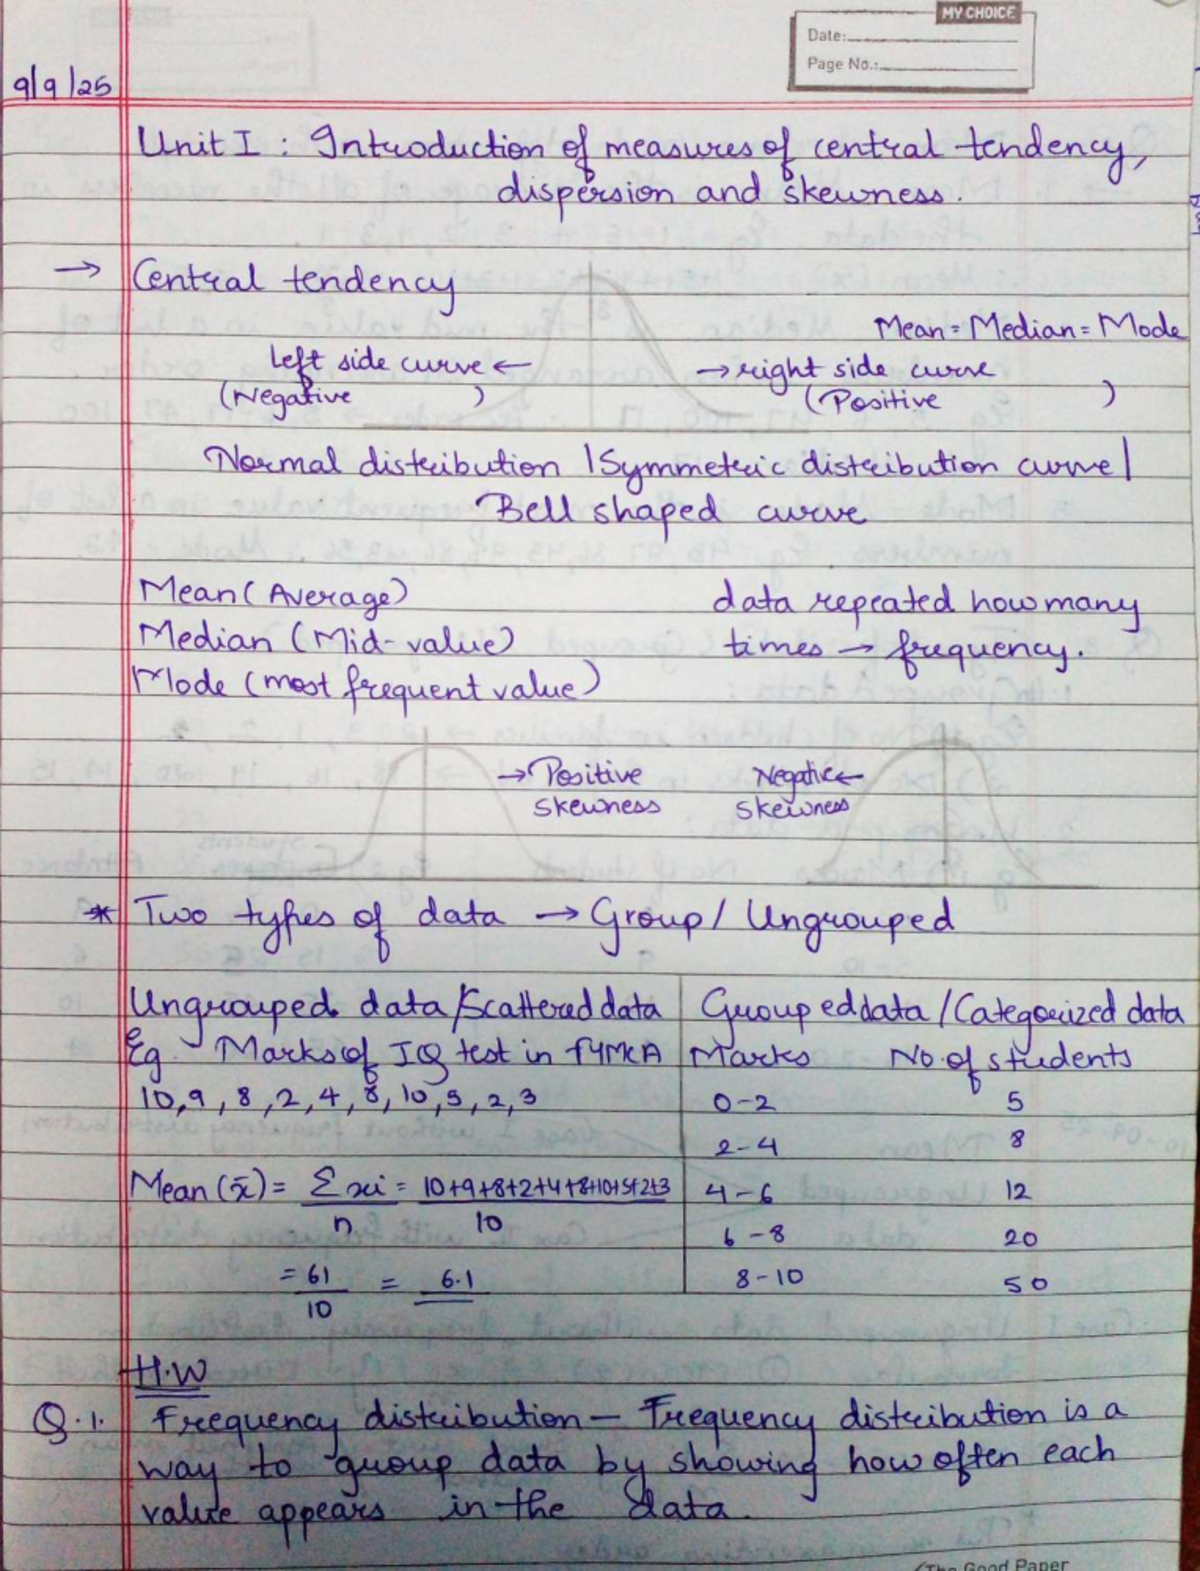 MY CHOICE
Date:
Page No.:
9/9/25
Unit I : Introduction of measures of central tendency,
dispersion and skewness.
→ Central tendency
Mean = Median = Mode
left side curve ← → right side curve
(Negative ) (Positive )
Normal distribution | Symmetric distribution curve |
Bell shaped curve
Mean (Average) data repeated how many
Median (Mid-value) times → frequency.
Mode (most frequent value)
→ Positive Negatic←
skewness skewness
* Two types of data → Group / Ungrouped
Ungrouped data/Scattered data Grouped data / Categorized data
Eg. Marks of IQ test in FYMCA Marks No. of students
10, 9, 8, 2, 4, 8, 10, 5, 2, 3 0-2 5
2-4 8
Mean (x̄) = Σxi / n = 10+9+8+2+4+8+10+5+2+3 / 10 4-6 12
6-8 20
= 61 / 10 = 6.1 8-10 50
H.W
Q.1. Frequency distribution - Frequency distribution is a
way to group data by showing how often each
value appears in the data.
(The Good Paper